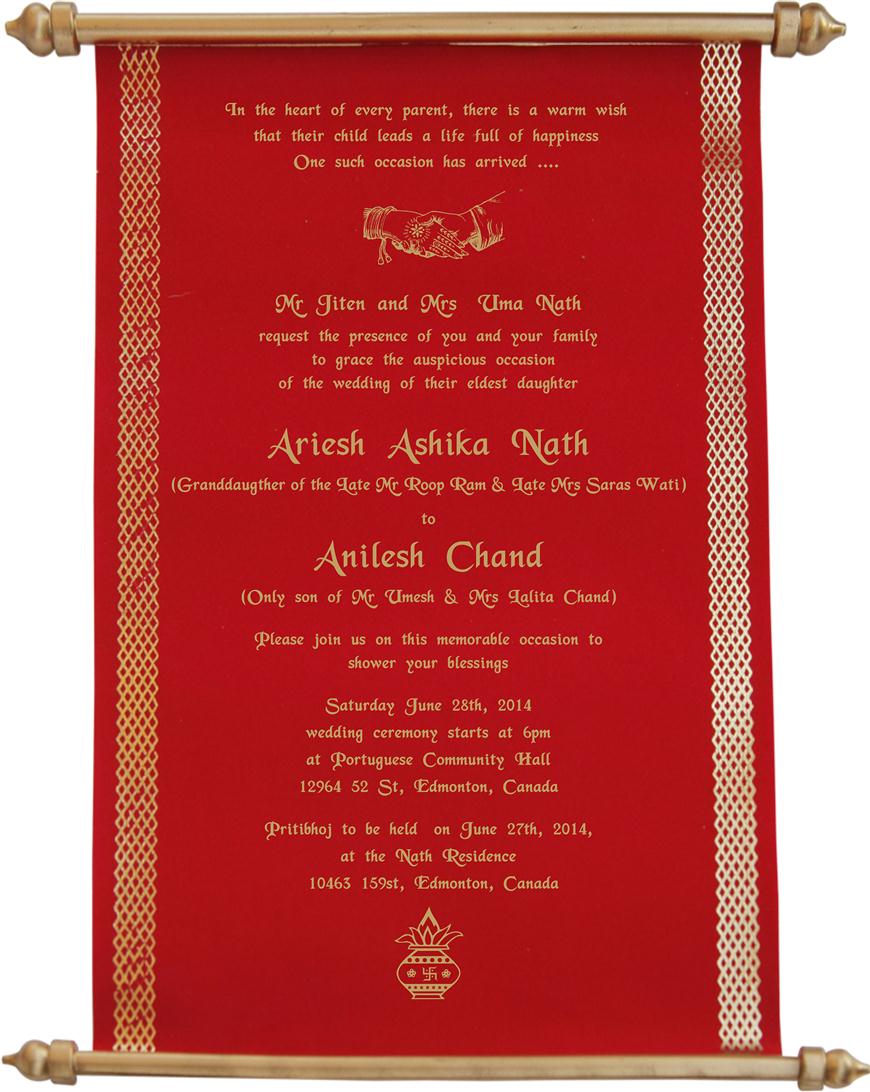 In the heart of every parent, there is a warm wish
that their child leads a life full of happiness
One such occasion has arrived ....
Mr Jiten and Mrs Uma Nath
request the presence of you and your family
to grace the auspicious occasion
of the wedding of their eldest daughter
Ariesh Ashika Nath
(Granddaugther of the Late Mr Roop Ram & Late Mrs Saras Wati)
to
Anilesh Chand
(Only son of Mr Umesh & Mrs Lalita Chand)
Please join us on this memorable occasion to
shower your blessings
Saturday June 28th, 2014
wedding ceremony starts at 6pm
at Portuguese Community Hall
12964 52 St, Edmonton, Canada
Pritibhoj to be held on June 27th, 2014,
at the Nath Residence
10463 159st, Edmonton, Canada